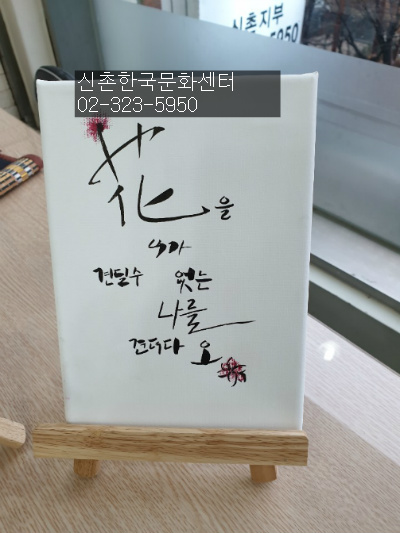 신촌지부
5950
신촌한국문화센터
02-323-5950
花을
견딜수 없는
나를
견뎌다오